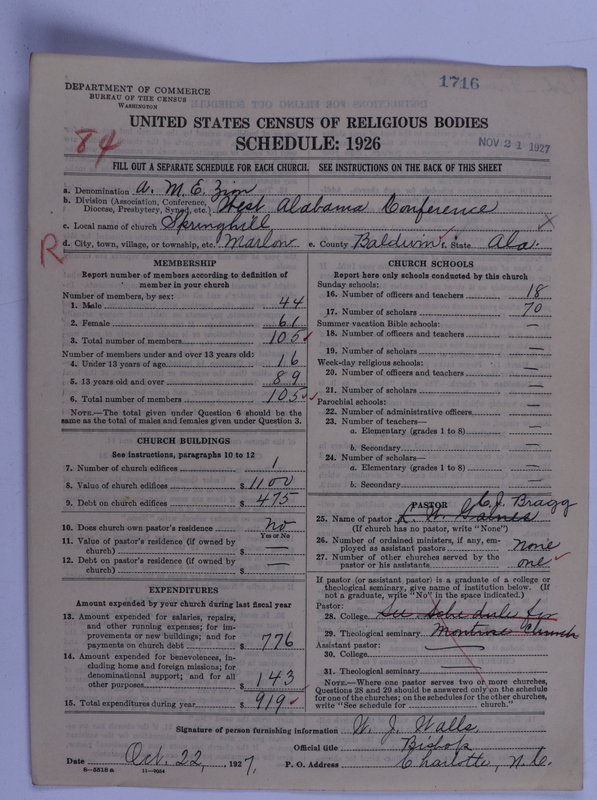 1716
DEPARTMENT OF COMMERCE
BUREAU OF THE CENSUS
WASHINGTON
84
UNITED STATES CENSUS OF RELIGIOUS BODIES
SCHEDULE: 1926
NOV 21 1927
FILL OUT A SEPARATE SCHEDULE FOR EACH CHURCH. SEE INSTRUCTIONS ON THE BACK OF THIS SHEET
a. Denomination A. M. E. Zion
b. Division (Association, Conference, Diocese, Presbytery, Synod, etc.) West Alabama Conference
c. Local name of church Springhill
R
d. City, town, village, or township, etc. Marlow e. County Baldwin f. State Ala.
MEMBERSHIP
Report number of members according to definition of
member in your church
Number of members, by sex:
1. Male 44
2. Female 61
3. Total number of members 105
Number of members under and over 13 years old:
4. Under 13 years of age 16
5. 13 years old and over 89
6. Total number of members 105
NOTE.—The total given under Question 6 should be the
same as the total of males and females given under Question 3.
CHURCH BUILDINGS
See instructions, paragraphs 10 to 12
7. Number of church edifices 1
8. Value of church edifices $1100
9. Debt on church edifices $475
10. Does church own pastor's residence No
Yes or No
11. Value of pastor's residence (if owned by
church) $ —
12. Debt on pastor's residence (if owned by
church) $ —
EXPENDITURES
Amount expended by your church during last fiscal year
13. Amount expended for salaries, repairs,
and other running expenses; for im-
provements or new buildings; and for
payments on church debt $776
14. Amount expended for benevolences, in-
cluding home and foreign missions; for
denominational support; and for all
other purposes $143
15. Total expenditures during year $919
CHURCH SCHOOLS
Report here only schools conducted by this church
Sunday schools:
16. Number of officers and teachers 18
17. Number of scholars 70
Summer vacation Bible schools:
18. Number of officers and teachers —
19. Number of scholars —
Week-day religious schools:
20. Number of officers and teachers —
21. Number of scholars —
Parochial schools:
22. Number of administrative officers —
23. Number of teachers—
a. Elementary (grades 1 to 8) —
b. Secondary —
24. Number of scholars—
a. Elementary (grades 1 to 8) —
b. Secondary —
PASTOR
C. J. Bragg
25. Name of pastor L. W. Gaines
(If church has no pastor, write "None")
26. Number of ordained ministers, if any, em-
ployed as assistant pastors None
27. Number of other churches served by the
pastor or his assistants one
If pastor (or assistant pastor) is a graduate of a college or
theological seminary, give name of institution below. (If
not a graduate, write "No" in the space indicated.)
Pastor:
28. College See Schedule for
29. Theological seminary Montrose Church
Assistant pastor:
30. College
31. Theological seminary
NOTE.—Where one pastor serves two or more churches,
Questions 28 and 29 should be answered only on the schedule
for one of the churches; on the schedules for the other churches,
write "See schedule for church."
Signature of person furnishing information W. J. Walls
Official title Bishop
Date Oct. 22, 1927. P. O. Address Charlotte, N.C.
6—5510a 11—9054